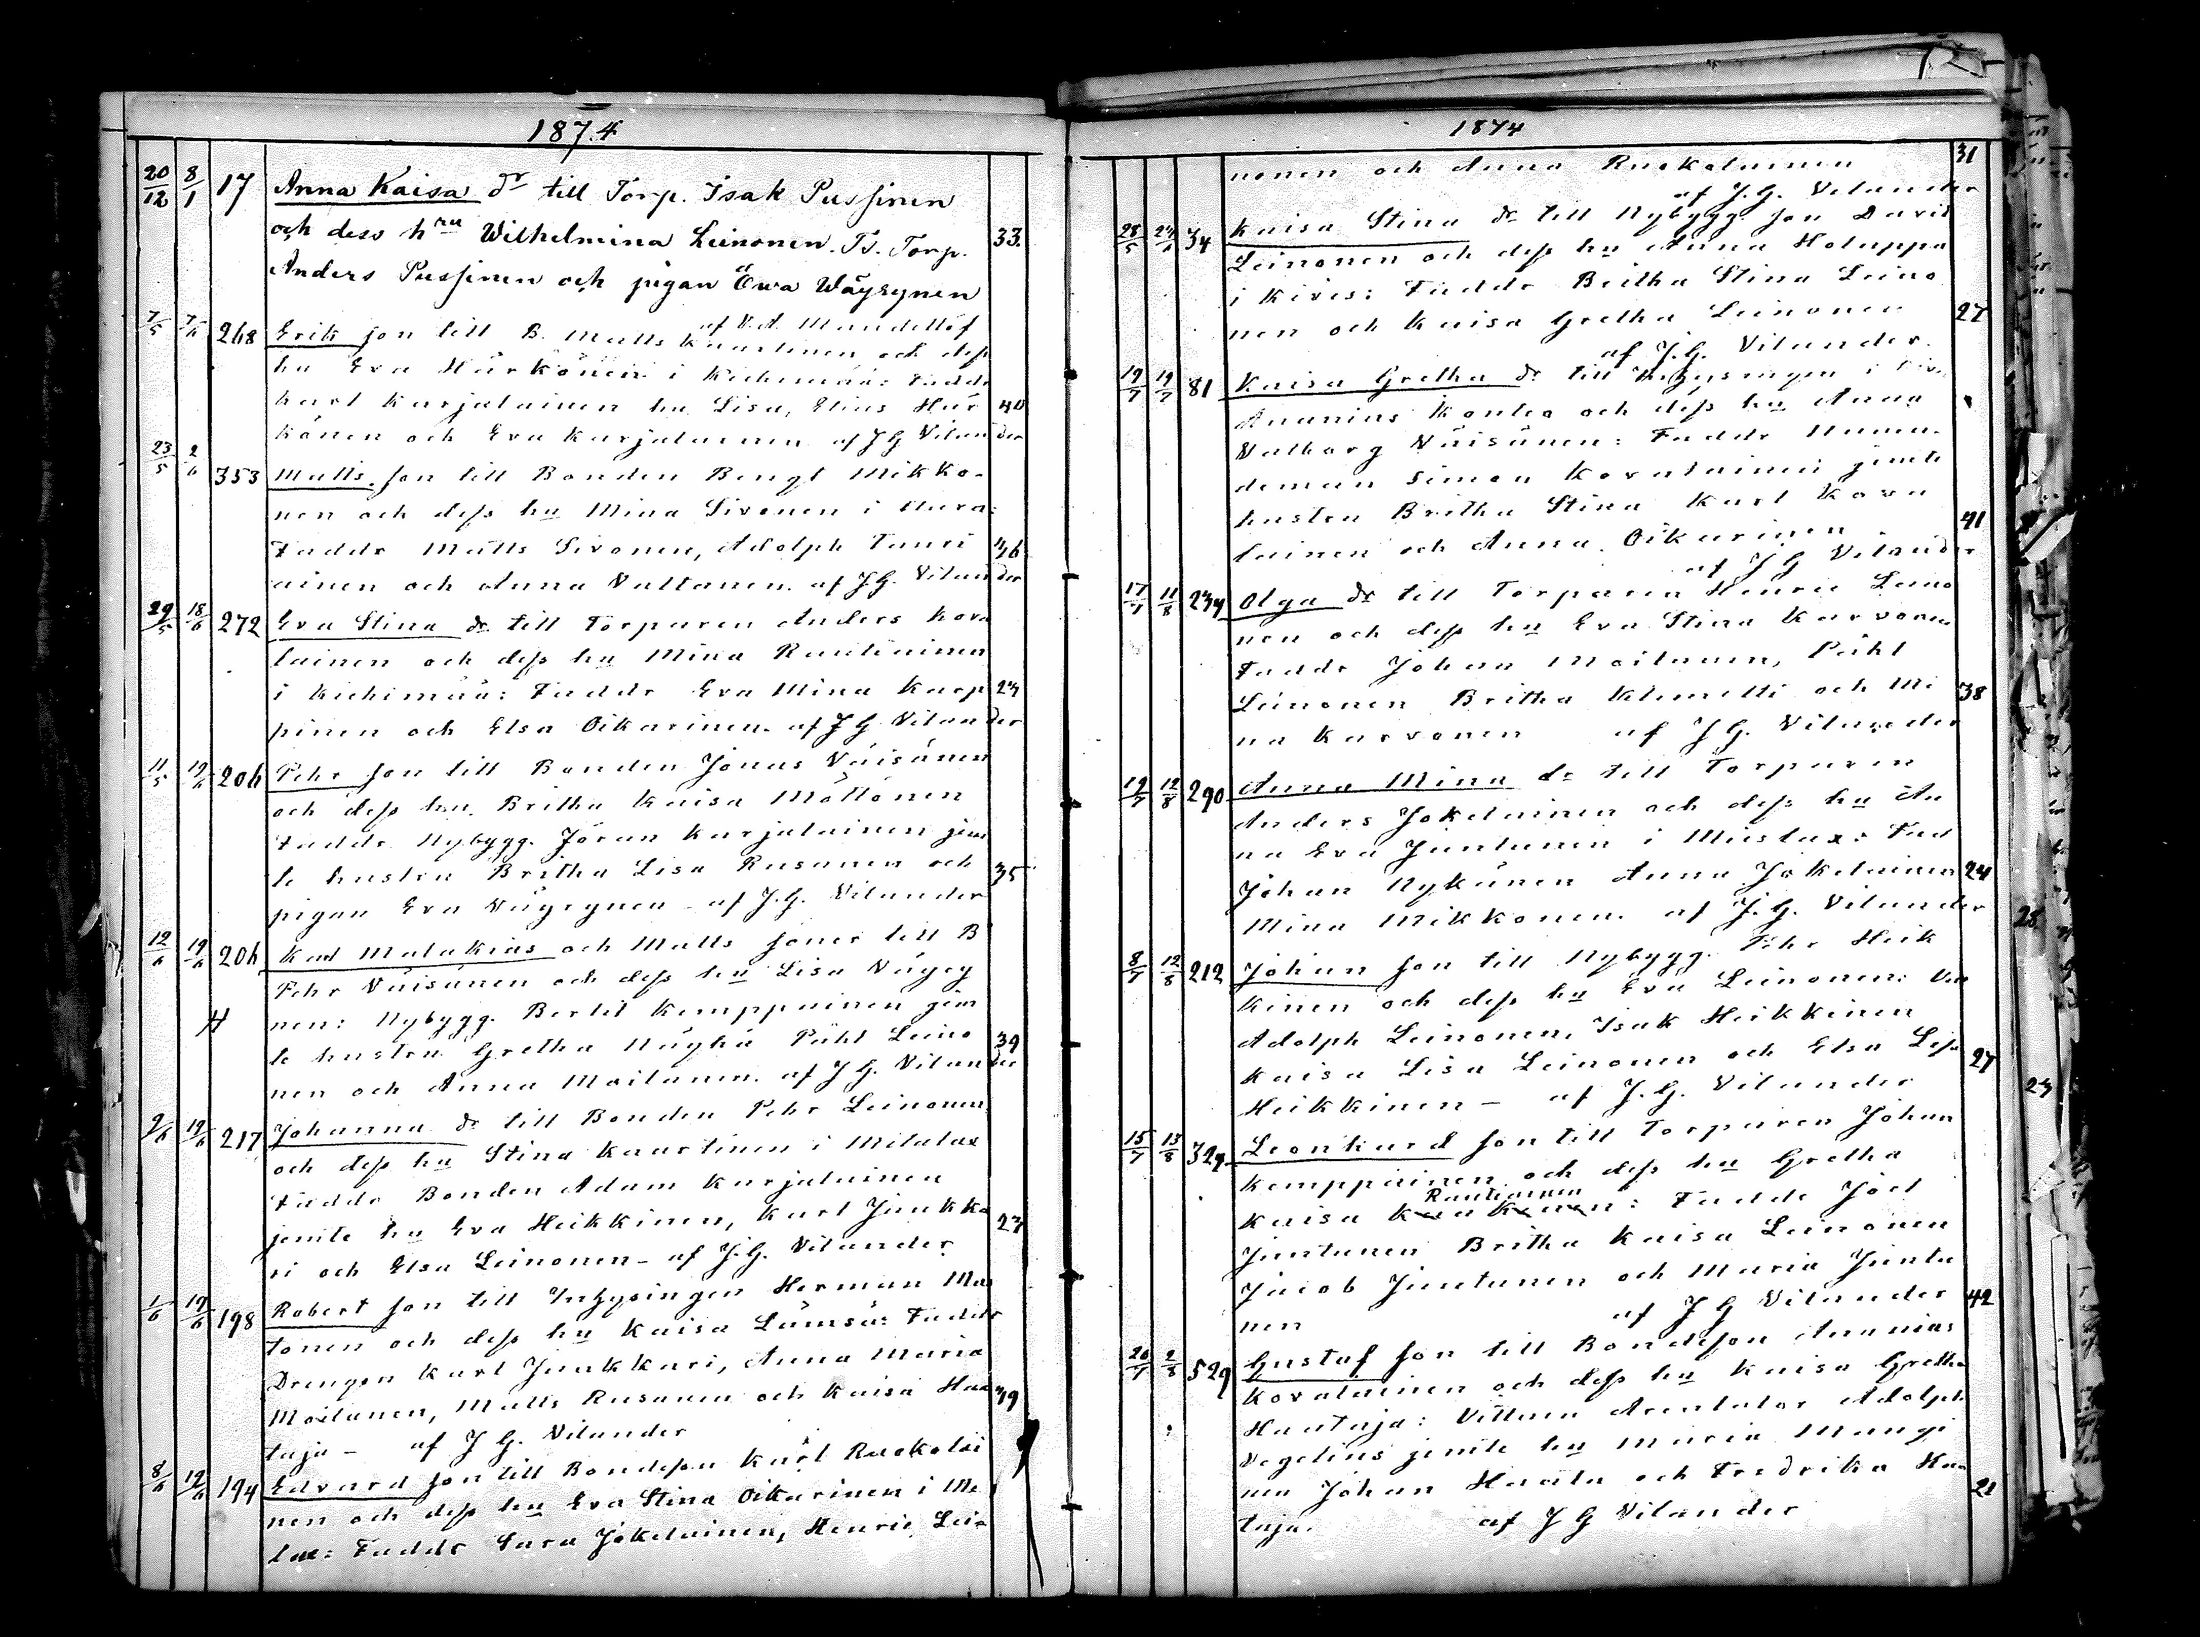 1874
20/12 8/1 17 Anna Kaisa dr till Torp. Isak Pussinen
och dess hru Wilhelmina Leinonen. Ts. Torp. 33
Anders Pussinen och pigan Ewa Wäyrynen
7/5 7/6 268 Erik son till B. Matts Kaartinen och dess
hu Eva Härkönen i Kiehimää: Faddr
Karl Karjalainen hu Lisa, Elias Här 40
könen och Eva Karjalainen af J G Vilander
23/5 2/6 353 Matts. son till Bonden Bengt Mikko-
nen och dess hu Mina Sivonen i
Faddr Matts Sivonen, Adolph Tauri 36
ainen och Anna Valtanen. af J.G. Vilander
29/5 18/6 272 Eva Stina dr till Torparen Anders Kova
lainen och dess hu Mina Rautiainen
i Kiehimää: Faddr Eva Mina Karp 23
pinen och Elsa Oikarinen. af J G Vilander
11/5 19/6 206 Pehr son till Bonden Jonas Väisänen
och dess hu. Britha Kaisa Möttönen
Faddr Nybygg. Jöran Karjalainen jem
te hustru Britha Lisa Rusanen och 35
pigan Eva Väyrynen af J.G. Vilander
12/6 19/6 206 Karl Malakias och Matts söner till B
Pehr Väisänen och dess hu Lisa Väyry
nen: Nybygg. Bertel Kemppainen jem
te hustru Gretha Näyhä Påhl Leino 39
nen och Anna Moilanen. af J G. Vilander
9/6 19/6 217 Johanna dr till Bonden Pehr Leinonen
och dess hu Stina Kaartinen i Mielalax
Faddr Bonden Adam Karjalainen
jemte hu Eva Heikkinen, Karl Junkka 23
ri och Elsa Leinonen - af J.G. Vilander
1/6 19/6 198 Robert son till Inhysingen Herman Ma
tonen och dess hu Kaisa Lämsä: Faddr
Drengen Karl Junkkari, Anna Maria
Moilanen, Matts Rusanen och Kaisa Hau 39
taja - af J G. Vilander
8/6 19/6 194 Edvard son till Bondeson Karl Ruokolai
nen och dess hu Eva Stina Oikarinen i Me
lax: Faddr Sara Jokelainen, Henric Lei-
1874
nonen och Anna Ruokolainen 31
af J.G. Vilander
28/5 24/6 34 Kaisa Stina dr till Nybygg. son David
Leinonen och dess hu Anna Holappa
i Kives: Faddr Britha Stina Leino
nen och Kaisa Gretha Leinonen 27
af J.G. Vilander.
19/7 19/7 81 Kaisa Gretha dr till Inhysingen i
Ananias Kontio och dess hu Anna
Valborg Väisänen: Faddr Nämn-
deman Simon Kovalainen jemte
hustru Britha Stina Karl Kova 41
lainen och Anna Oikarinen
af J G Vilander
17/7 11/8 234 Olga dr till Torparen Henric Leino
nen och dess hu Eva Stina Karvonen
Faddr Johan Moilanen, Påhl
Leinonen Britha Klemetti och Mi 38
na Karvonen af J G. Vilander
19/7 12/8 290 Anna Mina dr till Torparen
Anders Jokelainen och dess hu An
na Eva Juntunen i Mieslax: Fad
Johan Nykänen Anna Jokelainen 24
Mina Mikkonen. af J.G. Vilander
8/7 12/8 212 Johan son till Nybygg. Pehr Heik
kinen och dess hu Eva Leinonen:
Adolph Leinonen, Isak Heikkinen
Kaisa Lisa Leinonen och Elsa Lisa 27
Heikkinen - af J.G. Vilander
15/7 13/8 329 Leonhard son till Torparen Johan
Kemppainen och dess hu Gretha
Rautiainen
Kaisa : Faddr Joel
Juntunen Britha Kaisa Leinonen
Jacob Juntunen och Maria Juntu
nen af J G Vilander 42
26/7 2/8 529 Gustaf son till Bondeson Ananias
Kovalainen och dess hu Kaisa Gretha
Hautaja: Vittnen Arentator Adolph
Vegelius jemte hu Maria Mangi
nen Johan Haatu och Fredrika Hau 21
taja. af J G Vilander
28
23